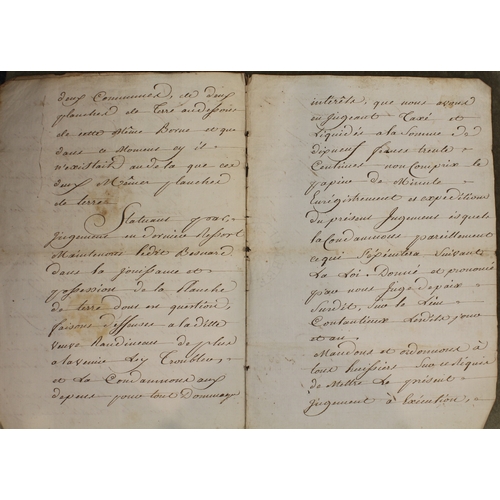 deux Communes, et de deux
planches de Terre au dessous
de cette Même Borne et que
dans ce Moment cy il
n'existait au dela que ces
deux Mêmes planches
de terre
Statuant par
Jugement en dernier Ressort
Maintenons ledit Besnard
dans la Jouissance et
possession de la planche
de terre dont est question,
faisons deffense a la ditte
veuve Baudineau de plus
a lavenir Ly Troubler,
et La Condamnons aux
depens pour tout dommage
interêts, que nous avons
en Jugeant Taxé et
Liquidés a la Somme de
dixneuf francs trente
Centimes non Compris le
papier de Minute
Enrégistrement et expedition
du présent Jugement és quels
la Condamnons pareillement
ce qui Sexécutera Suivant
La Loi. Donné et prononcé
par nous Juge de paix
Susdit, Sur le Lieu
Contantieux Lesdits jour
et an
Mandons et ordonnons à
tous huissiers Sur ce requis
de Mettre Le présent
Jugement à Exécution,